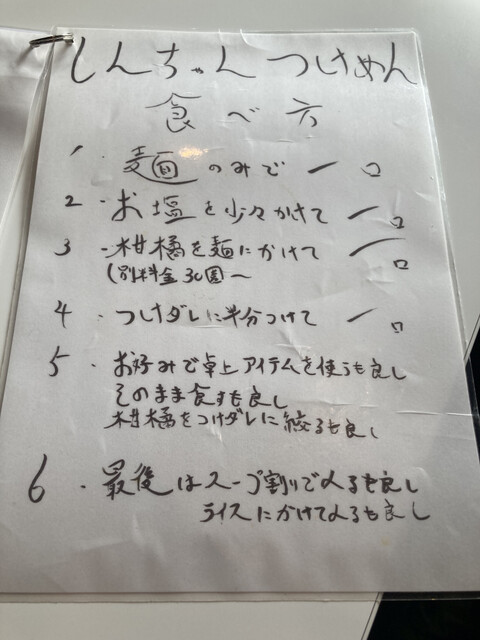 しんちゃん つけめん
食べ方
1. 麺のみで 一口
2. お塩を少々かけて 一口
3. 柑橘を麺にかけて 一口
(別料金30円〜
4. つけダレに半分つけて 一口
5. お好みで卓上アイテムを使うも良し
そのまま食すも良し
柑橘をつけダレに絞るも良し
6. 最後はスープ割りで〆るも良し
ライスにかけて〆るも良し